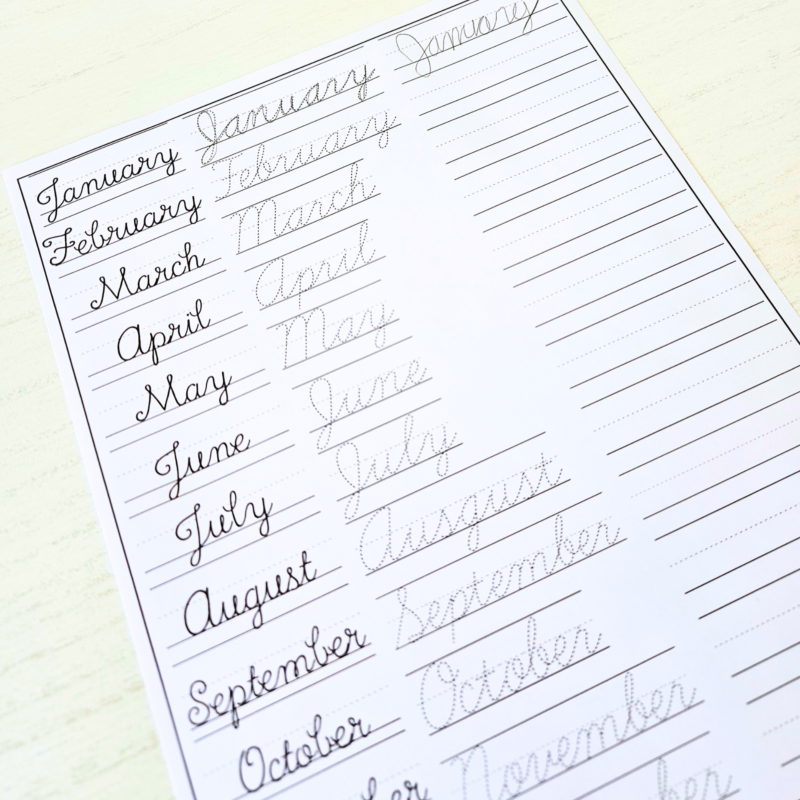 January January January
February February
March March
April April
May May
June June
July July
August Ausgust
September September
October October
November